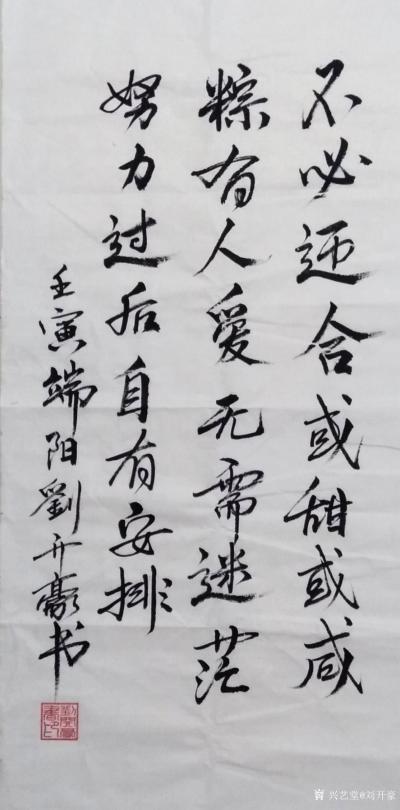 不必迎合或甜或咸
粽有人爱无需迷茫
努力过后自有安排
壬寅端阳劉开豪书
兴艺堂@刘开豪